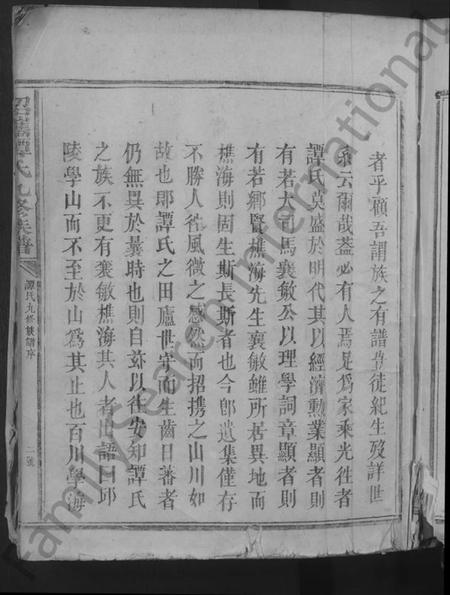 者乎顧吾謂族之有譜豈徒紀生歿詳世
系云爾哉蓋必有人焉足為家乘光往者
譚氏莫盛於明代其以經濟勲業顯者則
有若大司馬襄敏公以理學詞章顯者則
有若鄉賢樵海先生襄敏雖所居異地而
樵海則固生斯長斯者也今卽遺集僅存
不勝人徃風微之感然而招携之山川如
故也耶譚氏之田廬世宅而生齒日蕃者
仍無異於曩時也則自茲以往安知譚氏
之族不更有襄敏樵海其人者出語曰邱
陵學山而不至於山為其止也百川學海
譚氏九修族譜
譚氏九修族譜序
二號
FamilySearch International